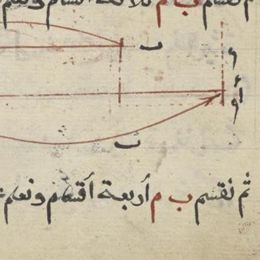 نقسم ب م ثلاثة اقسام ونعلم
ب
أو
ب
ثم نقسم ب م أربعة أقسام ونعلم